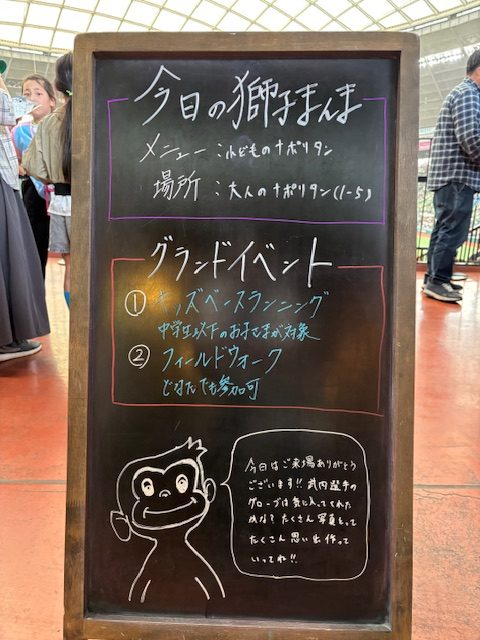 今日の獅子まんま
メニュー：小どものナポリタン
場所：大人のナポリタン(1-5)
グランドイベント
① キッズベースランニング
中学生以下のお子さまが対象
② フィールドウォーク
どなたでも参加可
今日はご来場ありがとう
ございます!! 武内選手の
グローブは気に入ってくれた
かな? たくさん写真とって
たくさん思い出作って
いってね!!